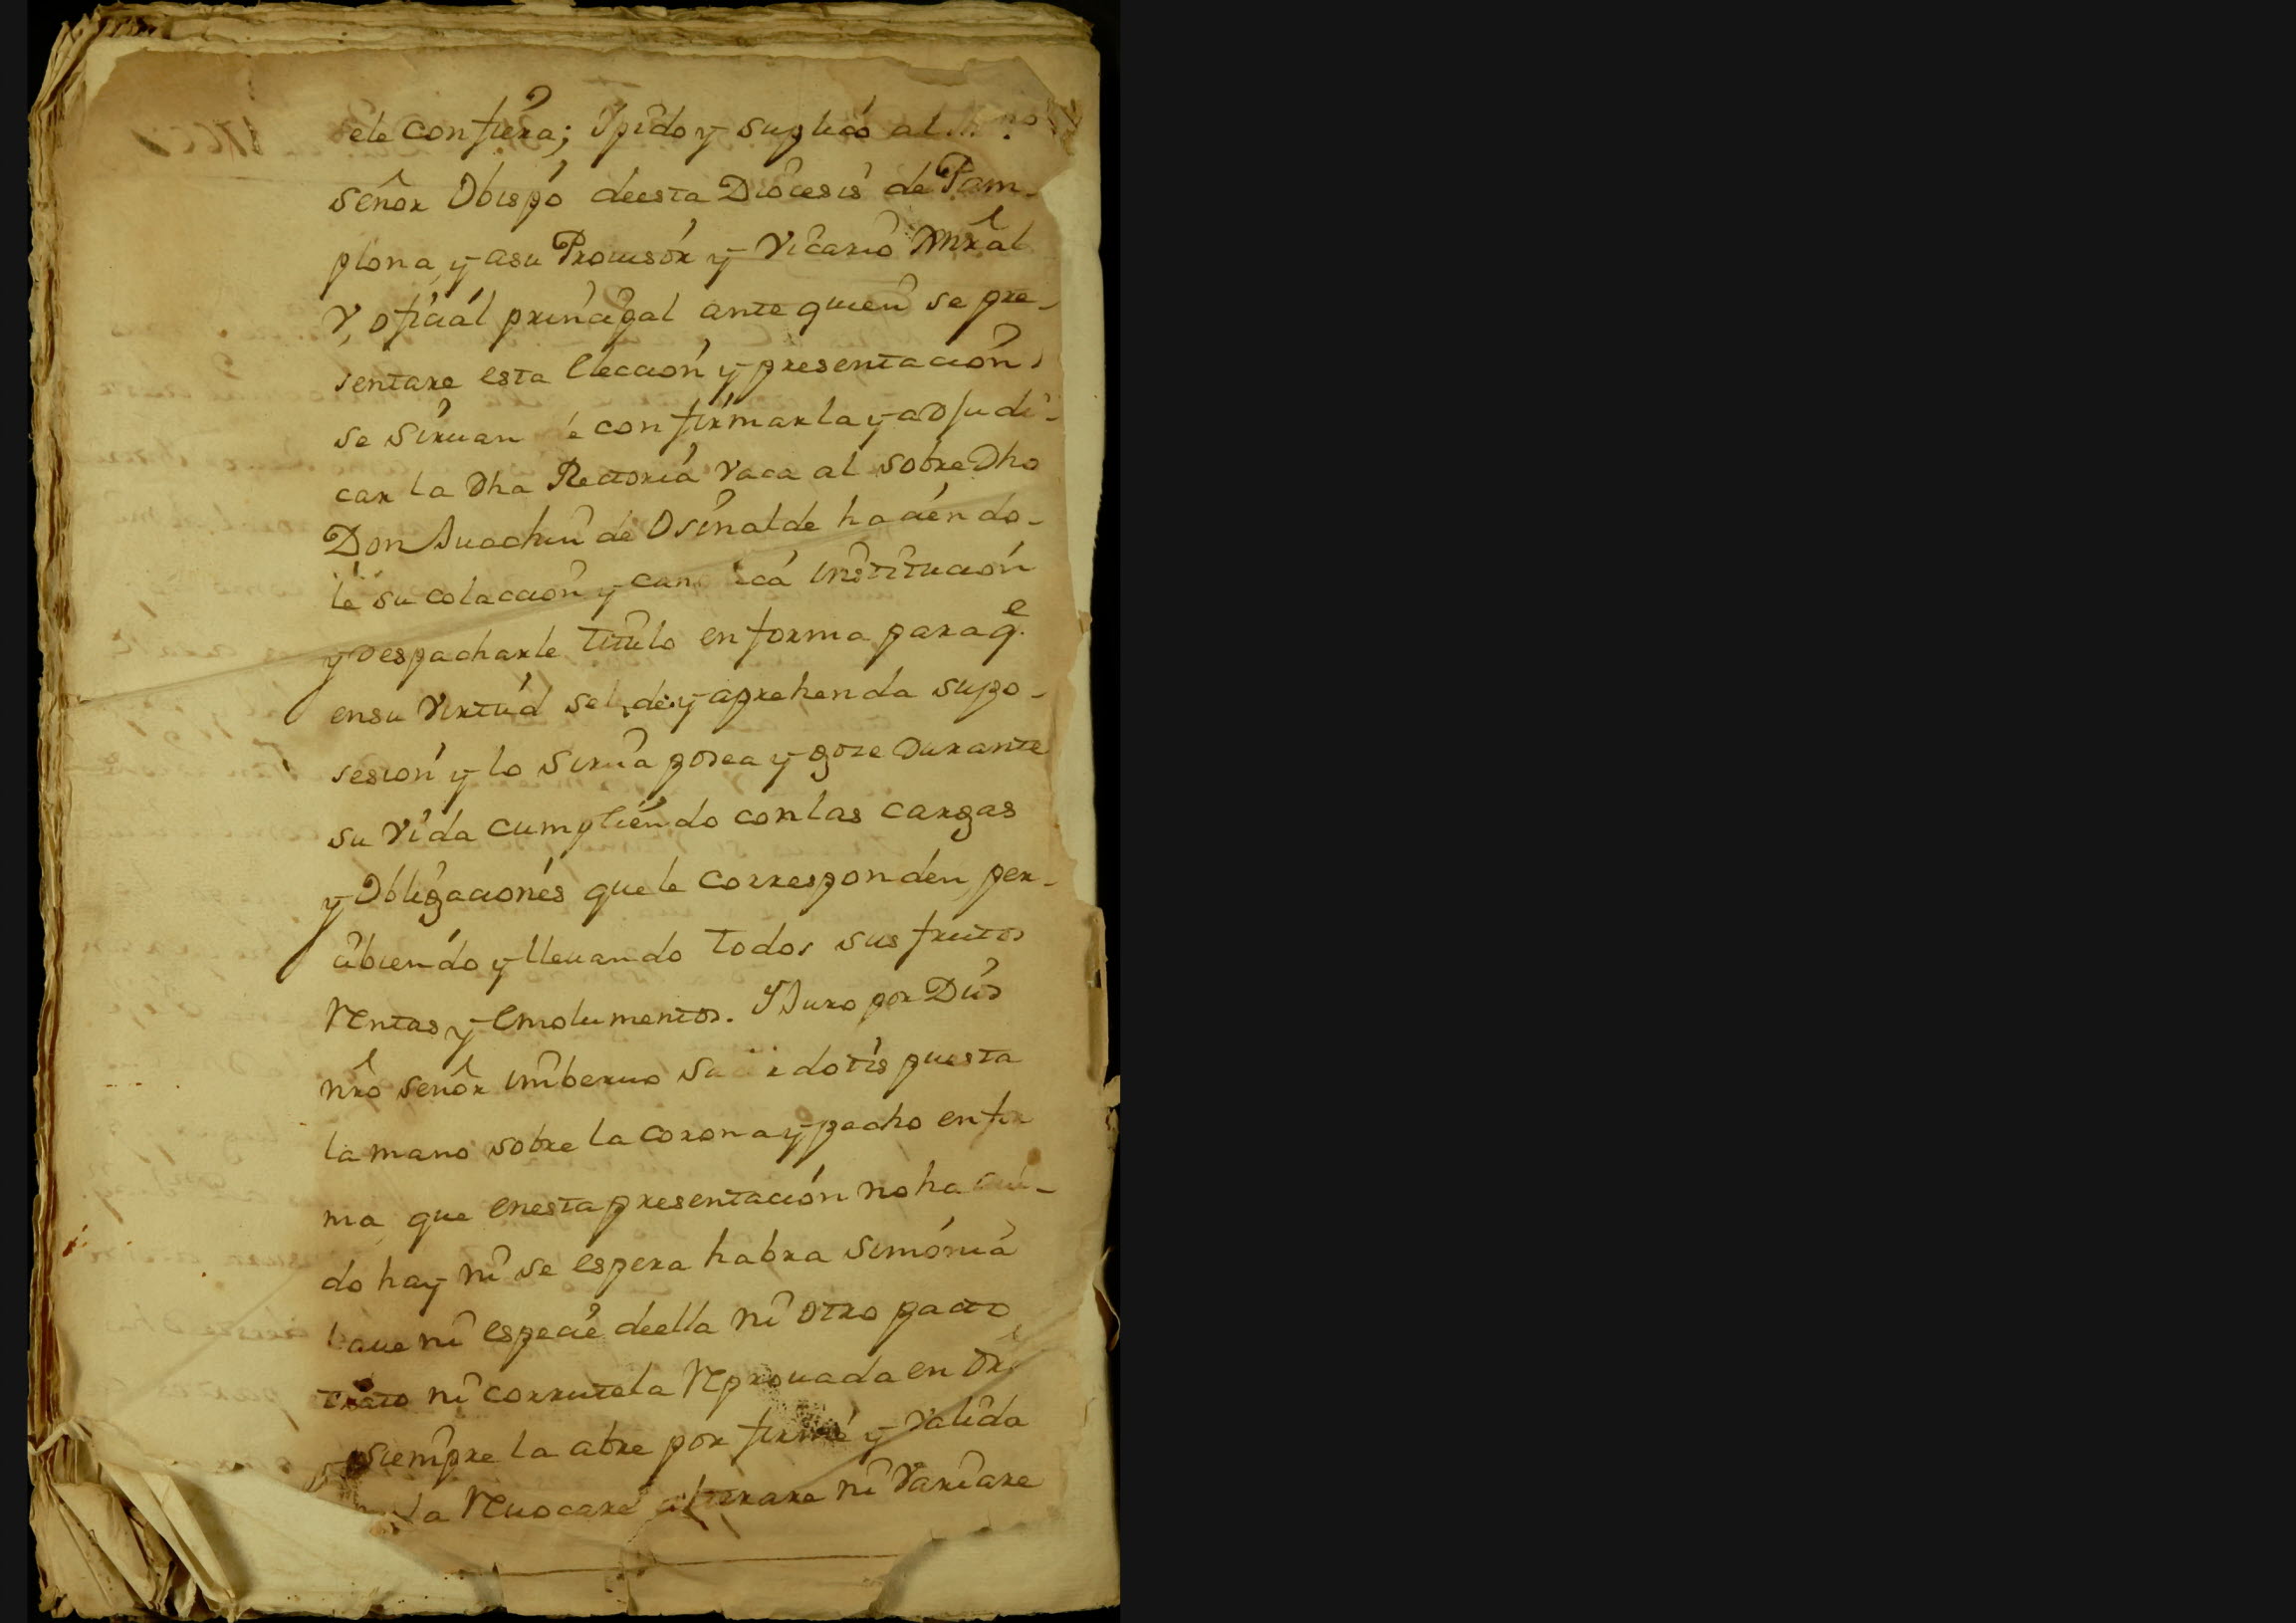 ele Confiera; Ypido y suplico al
señor Obispo deesta Diocesis de Pam-
plona, y asu Prouisor y Vicario Gnral
Y, oficial prinςipal ante quien se pre-
sentare esta Eleccion y presentacion
se siruan e confirmarla y adjudi-
car la Dha Rectoria Vaca al sobre Dho
Don Juachin de Osinalde haciendo-
le su colaccion y institucion
y Despacharle Titulo en forma para q.e
ensu Virtud de y aprehenda supo-
sesion y lo sirua posea y goze Durante
su Vida cumpliendo con las cargas
y Obligaciones que le corresponden, per-
cibiendo y lleuando Todos sus frutos
Rentas y Emolumentos. YJuro por Dios
nro señor imberuo puesta
la mano sobre la corona y pecho en for
ma, que enesta presentacion no ha aui-
do hay ni se espera habra simonia
ni especie deella ni otro pacto
trato ni corrutela Reprouada en Dro
y siempre la abre por firme y valida
la Reuocare alterare ni Variare